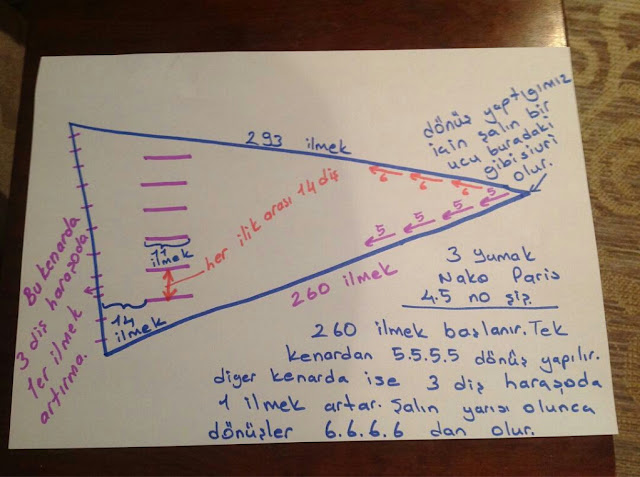 293 ilmek
dönüş yaptığımız
için şalın bir
ucu buradaki
gibi sivri
olur.
6 6 6 6
5 5 5 5
her ilik arası 14 diş
11
ilmek
14
ilmek
Bu kenarda
3 diş haraşoda
1er ilmek
artırma.
260 ilmek
3 yumak
Nako Paris
4.5 no şiş.
260 ilmek başlanır. Tek
kenardan 5.5.5.5 dönüş yapılır.
diğer kenarda ise 3 diş haraşoda
1 ilmek artar. Şalın yarısı olunca
dönüşler 6.6.6.6 dan olur.